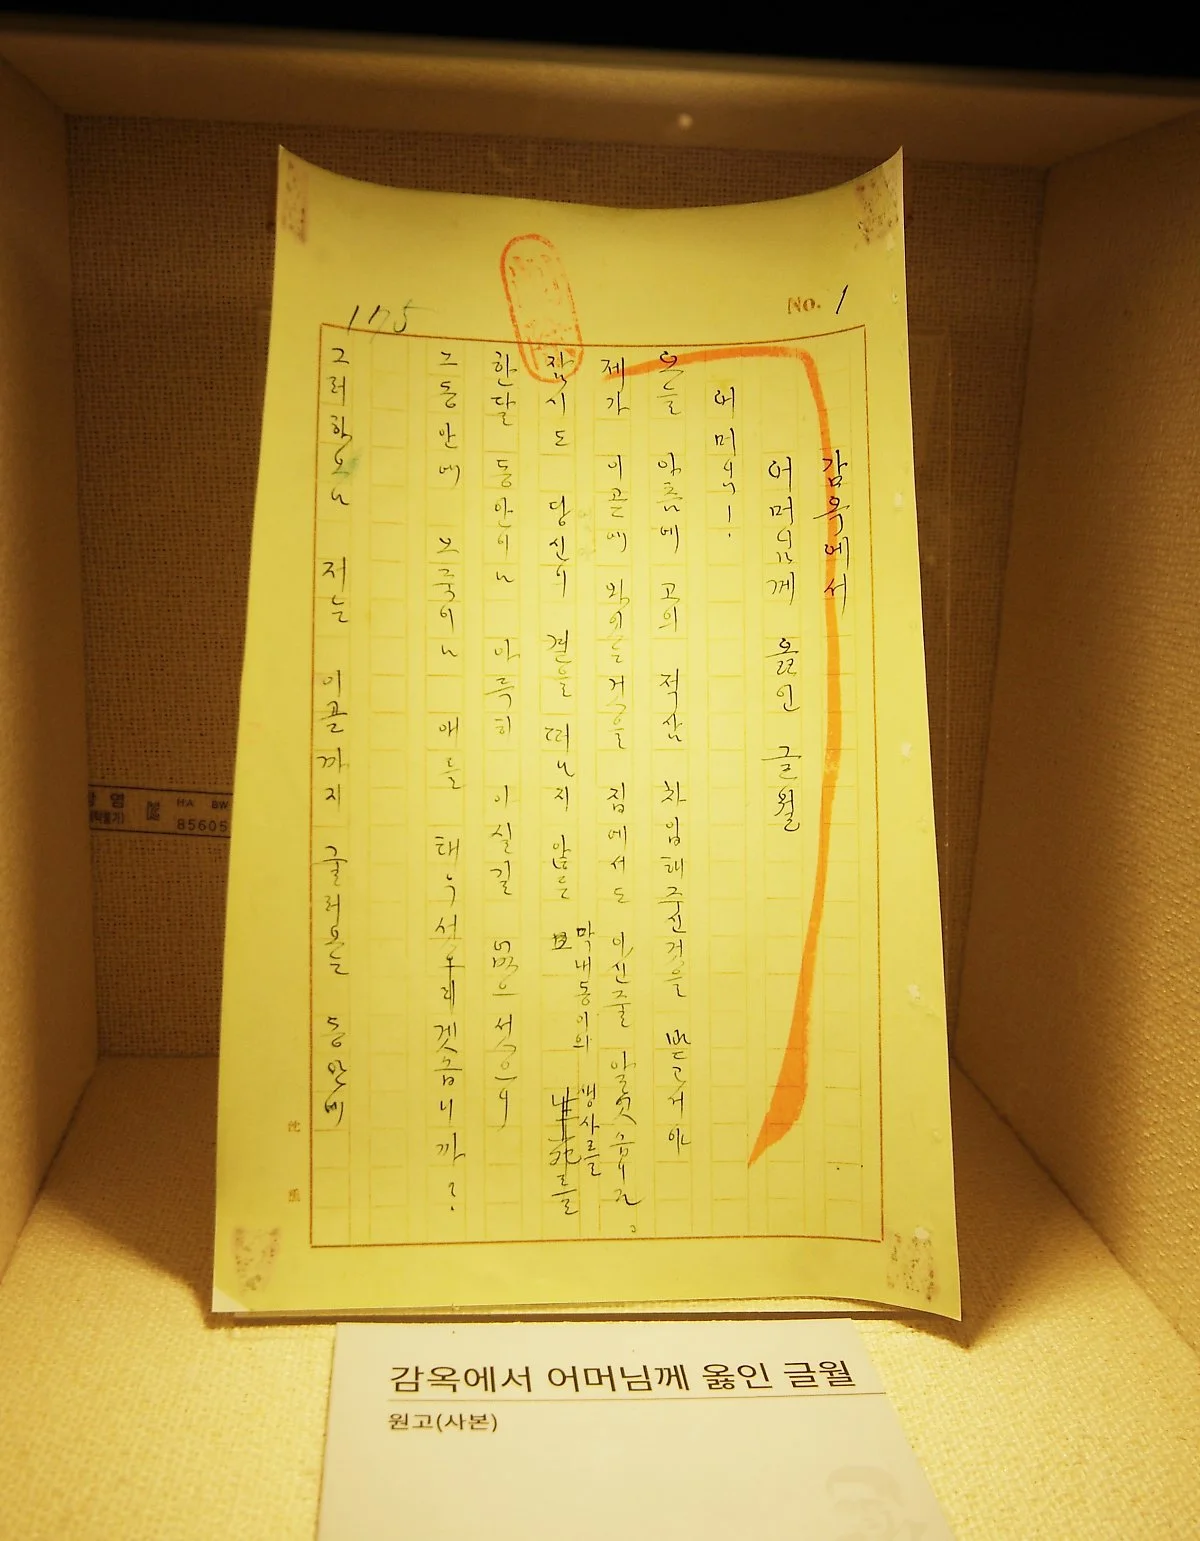 No. 1
175
감옥에서
어머님께 옳인 글월
어머님!
오늘 아츰에 고의 적삼 차입해주신것을 받고서야
제가 이곧에 와잇는거슬 집에서도 아신줄 알엇슴니다。
잠시도 당신의 곁을 떠나지 않은 막내동이의 생사를
한달 동안이나 아득히 아실길 없으섯으니
그동안에 오죽이나 애를 태우섯겟슴니까?
그러하오나 저는 이곧까지 굴러오는 동안에
沈 熏
HA BW
85605
감옥에서 어머님께 옳인 글월
원고(사본)